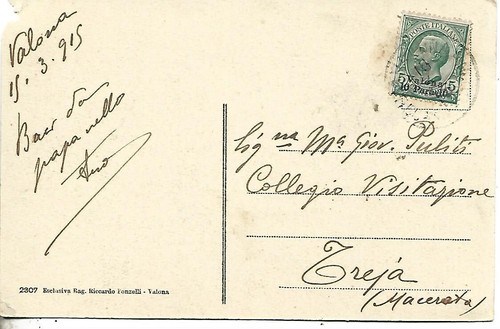 Valona
15. 3. 915
Baci dal
papa nello
POSTE ITALIANE
Valona
5 10 Para 5
Sig na Ma Giov. Puliti
Collegio Visitazione
Treja
(Macerata)
2307 Esclusiva Rag. Riccardo Fonzelli - Valona